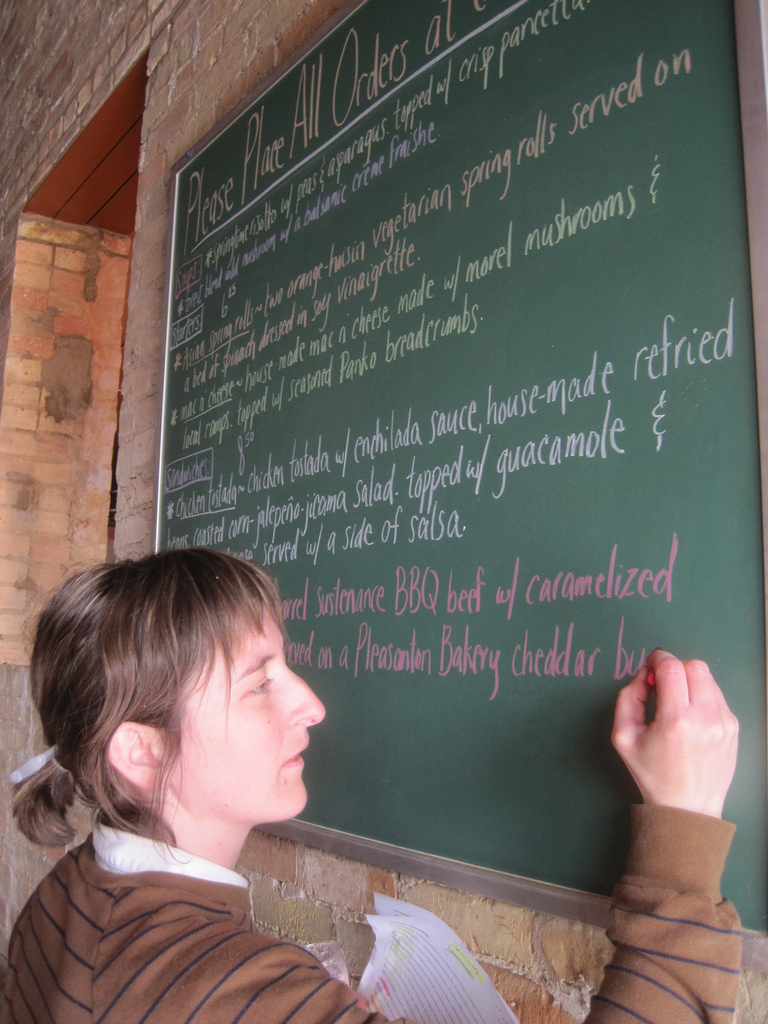 Please Place All Orders at
Soups *springtime risotto w/ peas & asparagus. topped w/ crisp pancetta.
*forest blend wild mushroom w/ a balsamic crème fraishe.
Starters 6 25
*Asian spring rolls~ two orange-huisin vegetarian spring rolls served on
a bed of spinach dressed in soy vinaigrette.
*mac n cheese~ house made mac n cheese made w/ morel mushrooms &
local ramps. topped w/ seasoned Panko breadcrumbs.
Sandwiches 8 50
*Chicken tostada~ chicken tostada w/ enchilada sauce, house-made refried
beans, roasted corn-jalepeño-jicama salad. topped w/ guacamole &
served w/ a side of salsa.
Sustenance BBQ beef w/ caramelized
on a Pleasanton Bakery cheddar bu